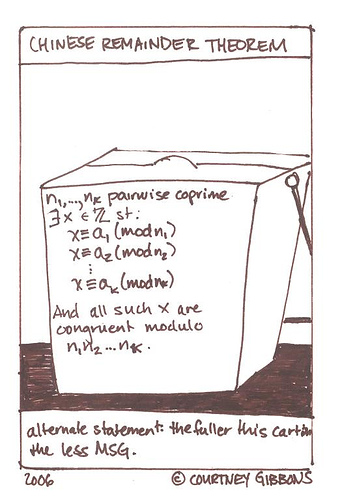 CHINESE REMAINDER THEOREM
n₁,...,nₖ pairwise coprime
∃ x ∈ ℤ st:
x ≡ a₁ (mod n₁)
x ≡ a₂ (mod n₂)
⋮
x ≡ aₖ (mod nₖ)
And all such x are
congruent modulo
n₁n₂...nₖ.
alternate statement: the fuller this carton
the less MSG.
2006 © COURTNEY GIBBONS